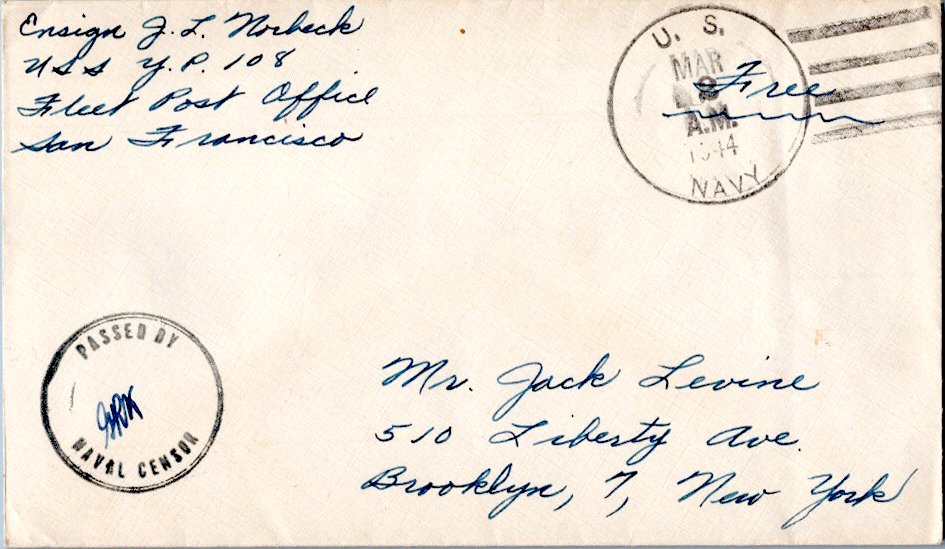 Ensign J. L. Norbeck
USS Y.P. 108
Fleet Post Office
San Francisco
U. S.
MAR
Free
A.M.
1944
NAVY
PASSED BY
NAVAL CENSOR
Mr. Jack Levine
510 Liberty Ave.
Brooklyn, 7, New York